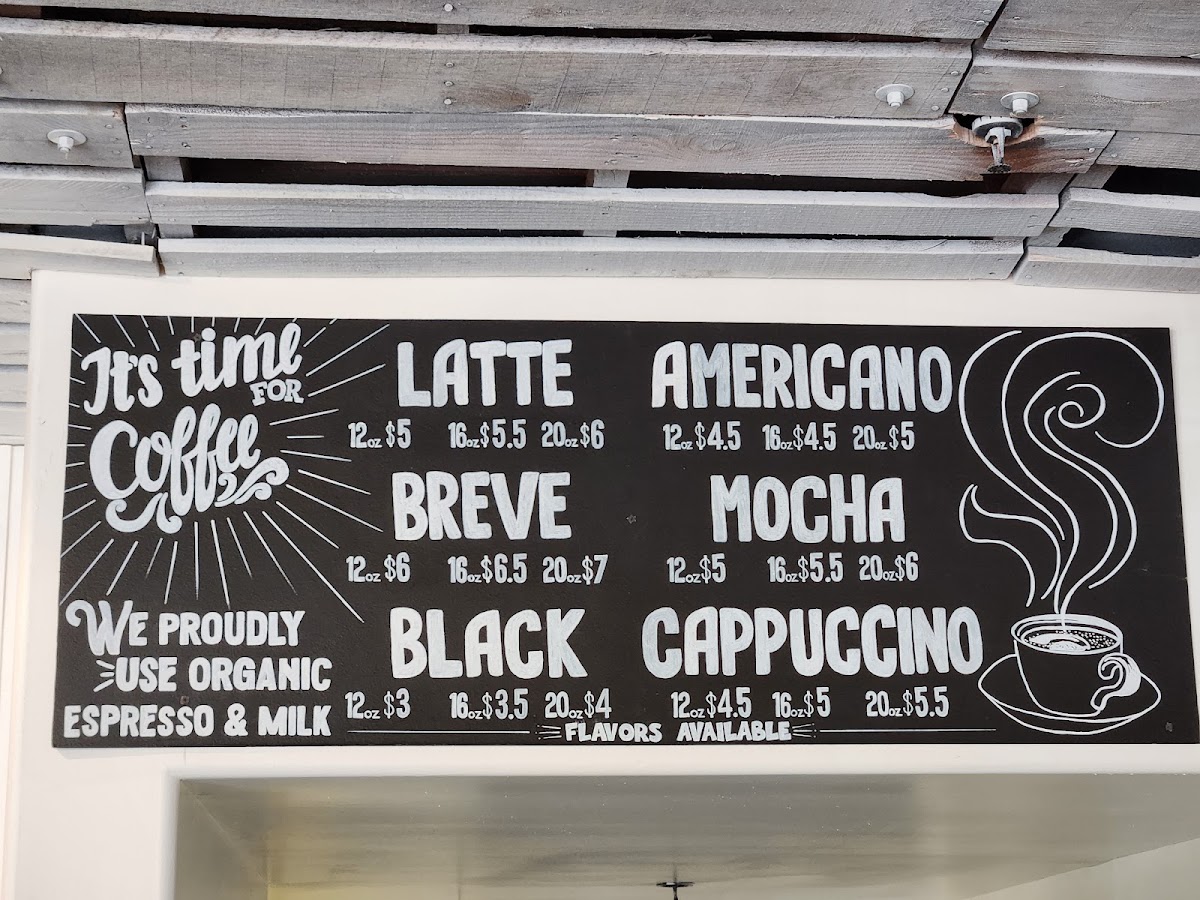 It's time
FOR
Coffee
WE PROUDLY
USE ORGANIC
ESPRESSO & MILK
LATTE
12oz $5 16oz $5.5 20oz $6
BREVE
12oz $6 16oz $6.5 20oz $7
BLACK
12oz $3 16oz $3.5 20oz $4
AMERICANO
12oz $4.5 16oz $4.5 20oz $5
MOCHA
12oz $5 16oz $5.5 20oz $6
CAPPUCCINO
12oz $4.5 16oz $5 20oz $5.5
FLAVORS AVAILABLE